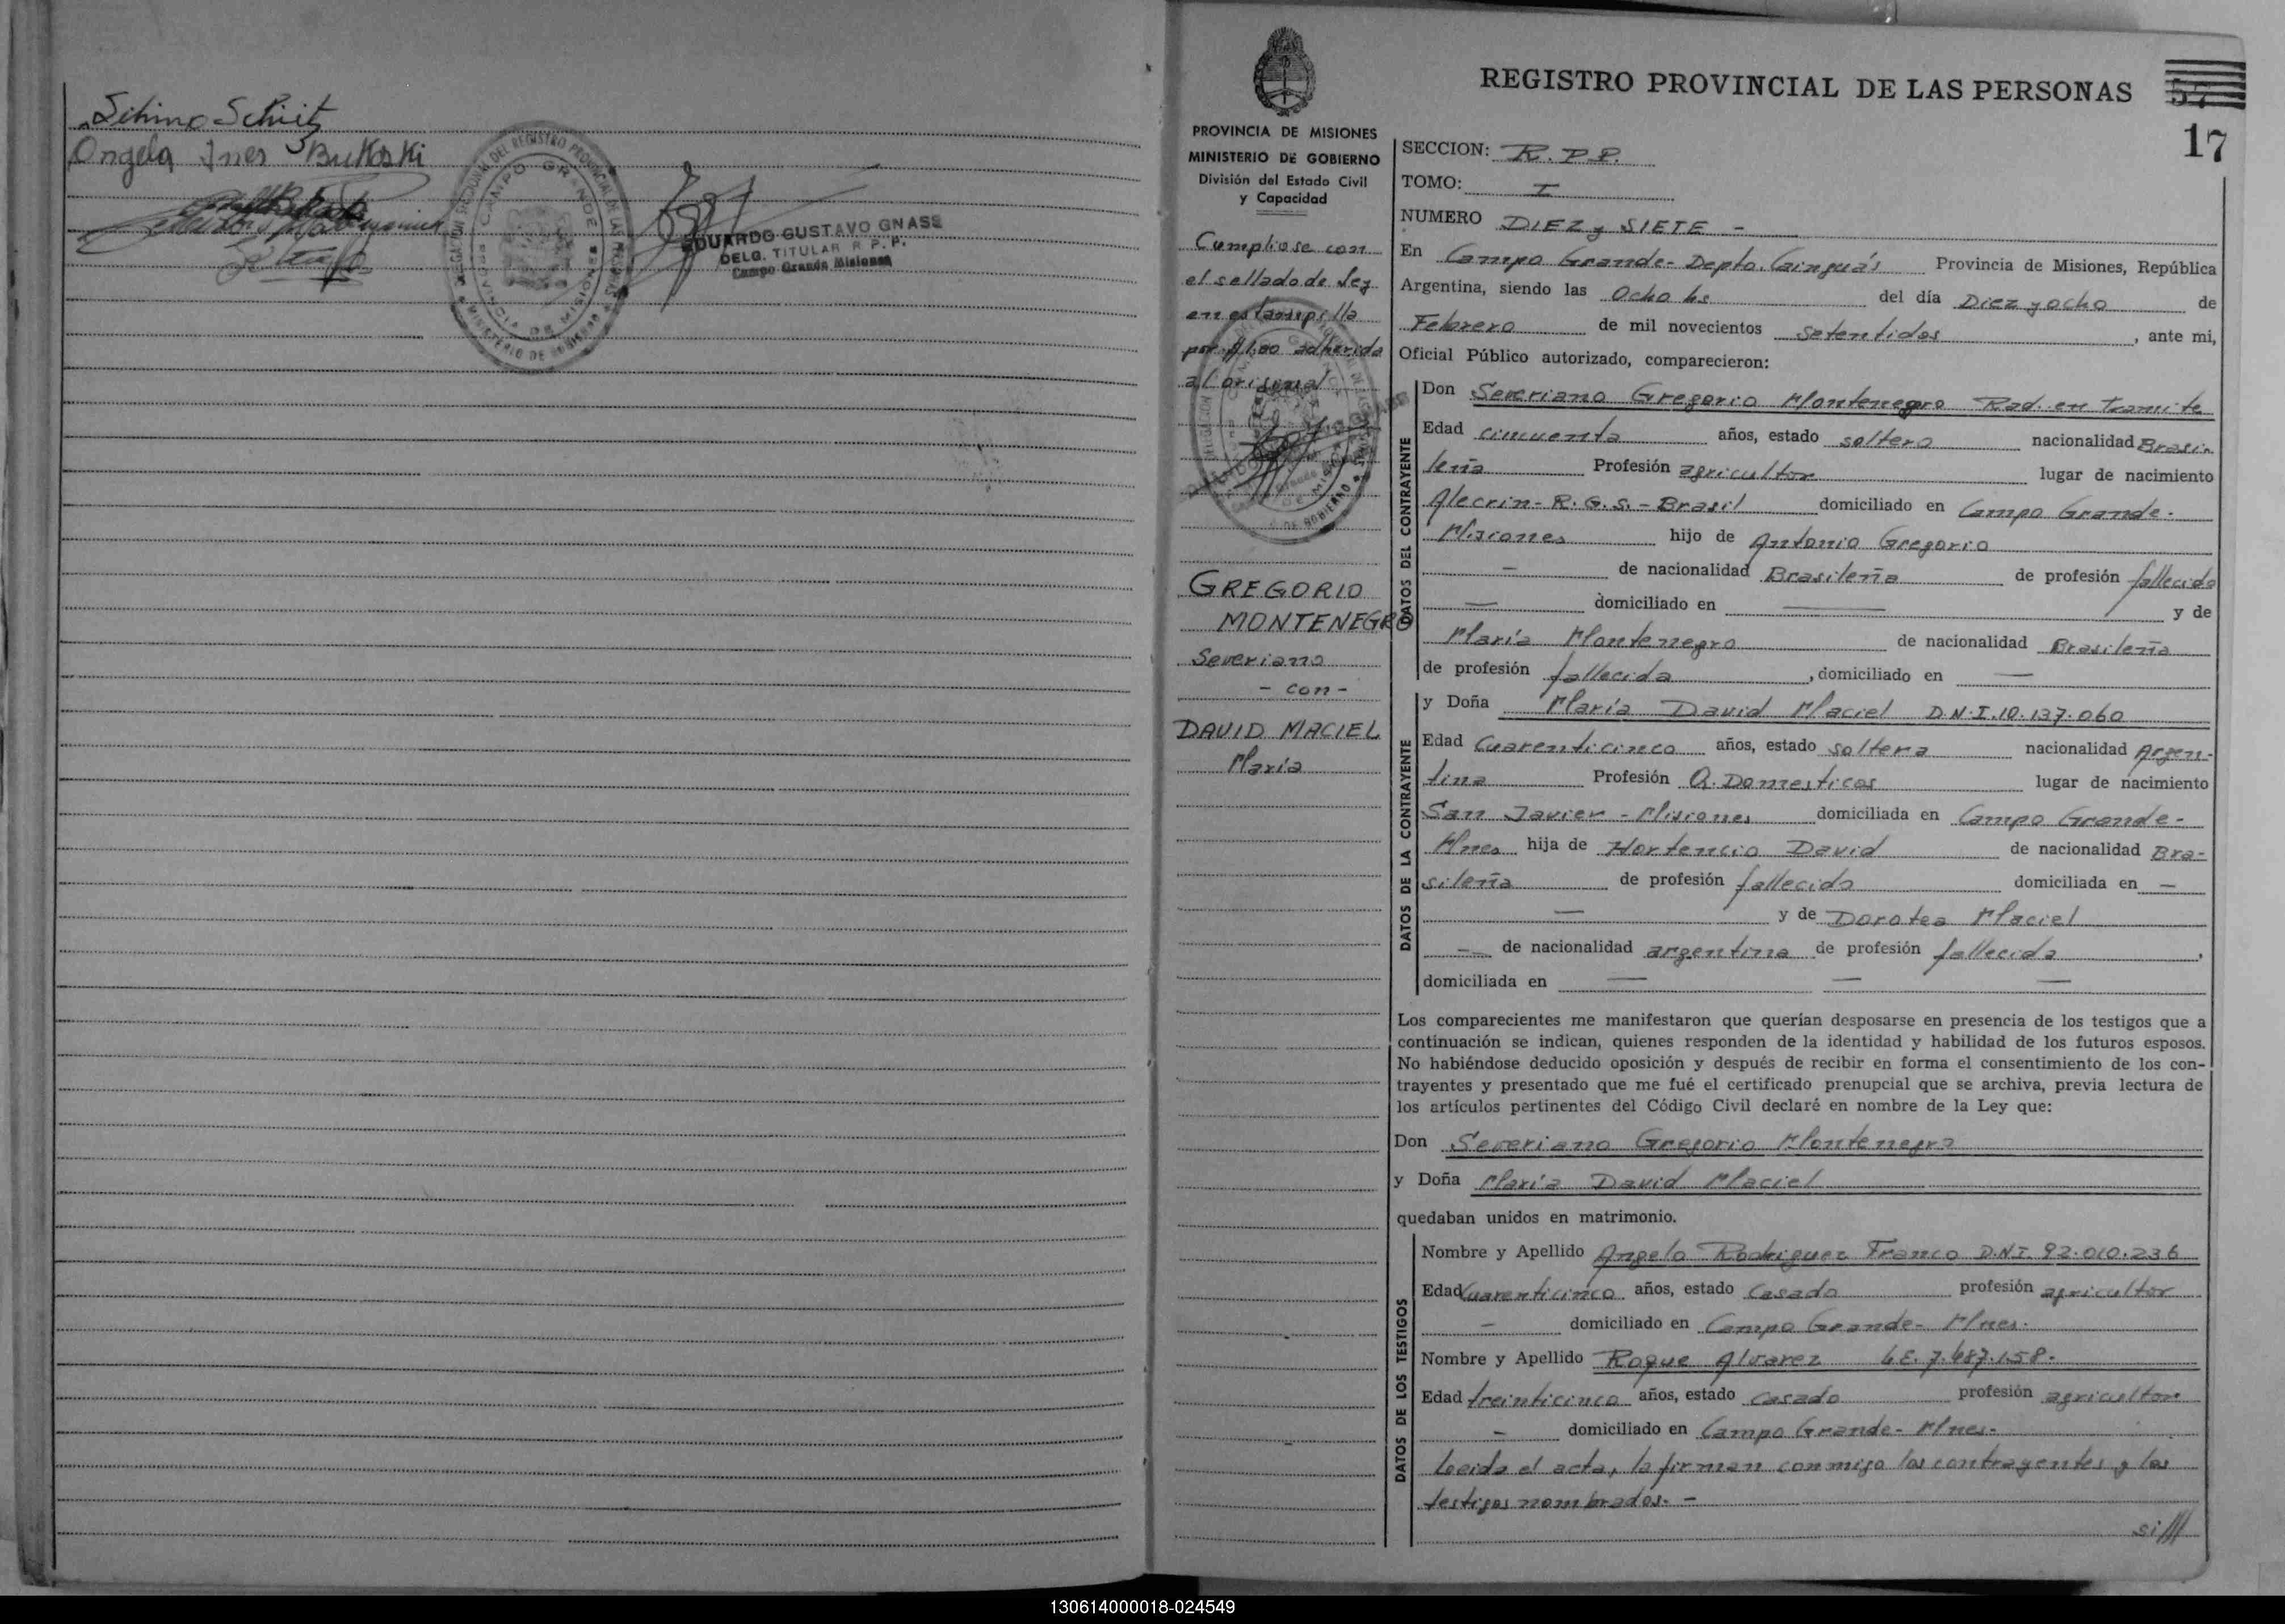 Silvino Schuitz
Angela Ines Bukoski
DELEGACION SECCIONAL DEL REGISTRO PROVINCIAL DE LAS PERSONAS
CAMPO GRANDE
PROVINCIA DE MISIONES
MINISTERIO DE GOBIERNO
EDUARDO GUSTAVO GNASS
DELG. TITULAR R. P. P.
Campo Grande Misiones
REGISTRO PROVINCIAL DE LAS PERSONAS
57
17
PROVINCIA DE MISIONES
MINISTERIO DE GOBIERNO
División del Estado Civil
y Capacidad
Cumpliose con
el sellado de Ley
en estampilla
por $1.00 adherida
al original
GREGORIO
MONTENEGRO
Severiano
- con -
DAVID MACIEL
María
SECCION: R. P. P.
TOMO: I
NUMERO DIEZ y SIETE -
En Campo Grande - Depto. Cainguás Provincia de Misiones, República
Argentina, siendo las Ocho hs del día Diez y ocho de
Febrero de mil novecientos setentidos, ante mi,
Oficial Público autorizado, comparecieron:
DATOS DEL CONTRAYENTE
Don Severiano Gregorio Montenegro Rad. en tramite
Edad cincuenta años, estado soltero nacionalidad Brasi-
leña Profesión agricultor lugar de nacimiento
Alecrin - R. G. S. - Brasil domiciliado en Campo Grande -
Misiones hijo de Antonio Gregorio
- de nacionalidad Brasileña de profesión fallecido
- domiciliado en - y de
María Montenegro de nacionalidad Brasileña
de profesión fallecida, domiciliado en -
DATOS DE LA CONTRAYENTE
y Doña María David Maciel D.N.I. 10.137.060
Edad Cuarenticinco años, estado soltera nacionalidad Argen-
tina Profesión Q. Domesticos lugar de nacimiento
San Javier - Misiones domiciliada en Campo Grande -
Mnes hija de Hortencio David de nacionalidad Bra-
sileña de profesión fallecido domiciliada en -
- y de Dorotea Maciel
- de nacionalidad argentina de profesión fallecida,
domiciliada en - - -
Los comparecientes me manifestaron que querían desposarse en presencia de los testigos que a
continuación se indican, quienes responden de la identidad y habilidad de los futuros esposos.
No habiéndose deducido oposición y después de recibir en forma el consentimiento de los con-
trayentes y presentado que me fué el certificado prenupcial que se archiva, previa lectura de
los artículos pertinentes del Código Civil declaré en nombre de la Ley que:
Don Severiano Gregorio Montenegro
y Doña María David Maciel
quedaban unidos en matrimonio.
DATOS DE LOS TESTIGOS
Nombre y Apellido Angelo Rodriguez Franco D.N.I. 92.010.236
Edad Cuarenticinco años, estado Casado profesión agricultor
- domiciliado en Campo Grande - Mnes.
Nombre y Apellido Roque Alvarez L.E. 7.487.158.
Edad treinticinco años, estado casado profesión agricultor
- domiciliado en Campo Grande - Mnes.
Leida el acta, la firman conmigo los contrayentes y los
testigos nombrados. -
si///
130614000018-024549